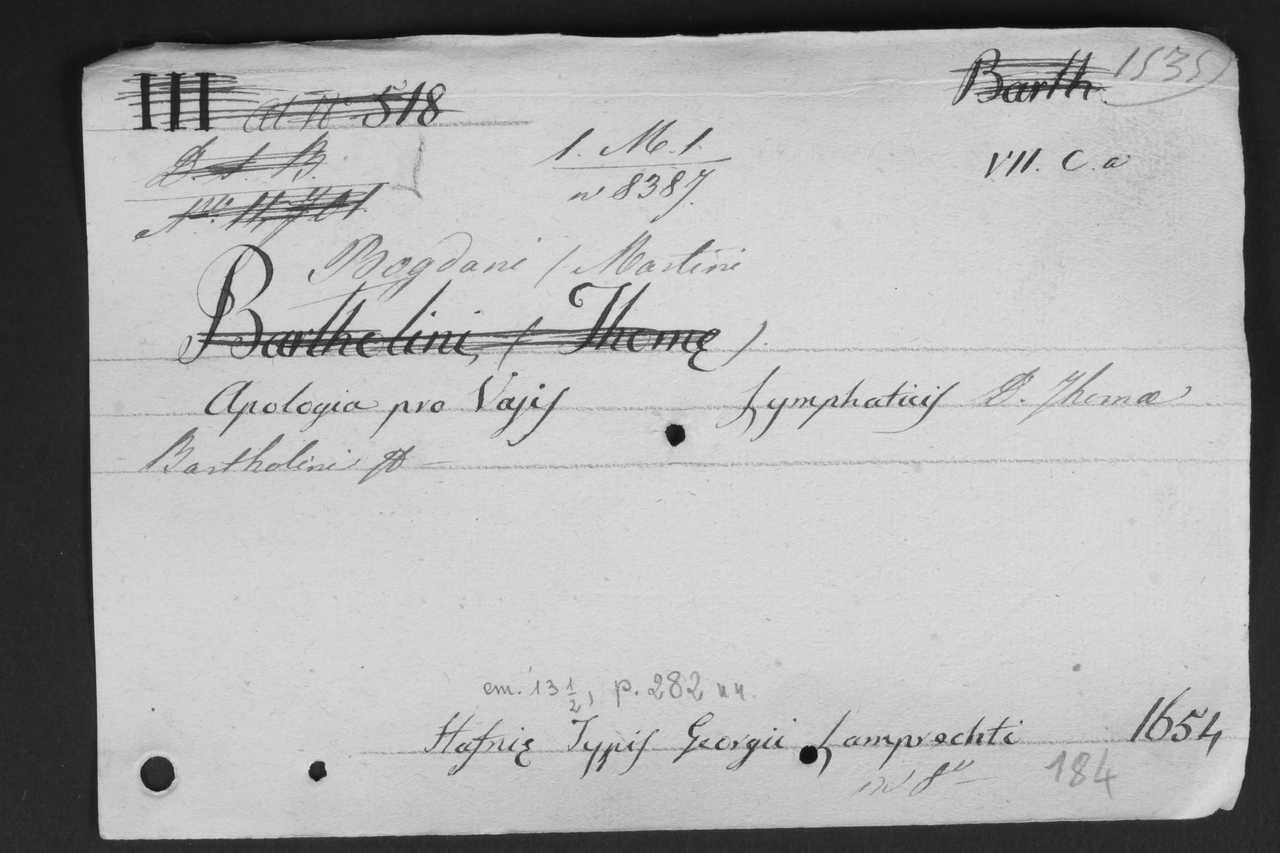 III ad N° 518
Barth 1535
D. A. B.
N° 11701.
1. M. 1.
n° 8387.
VII. C. a
Bogdani (Martini
Bartholini, (Thomę).
Apologia pro Vasis Lymphaticis D. Thomæ
Bartholini
cm. 13 1/2, p. 282 nn.
Hafnię Typis Georgii Lamprechti 1654
in 8°
184